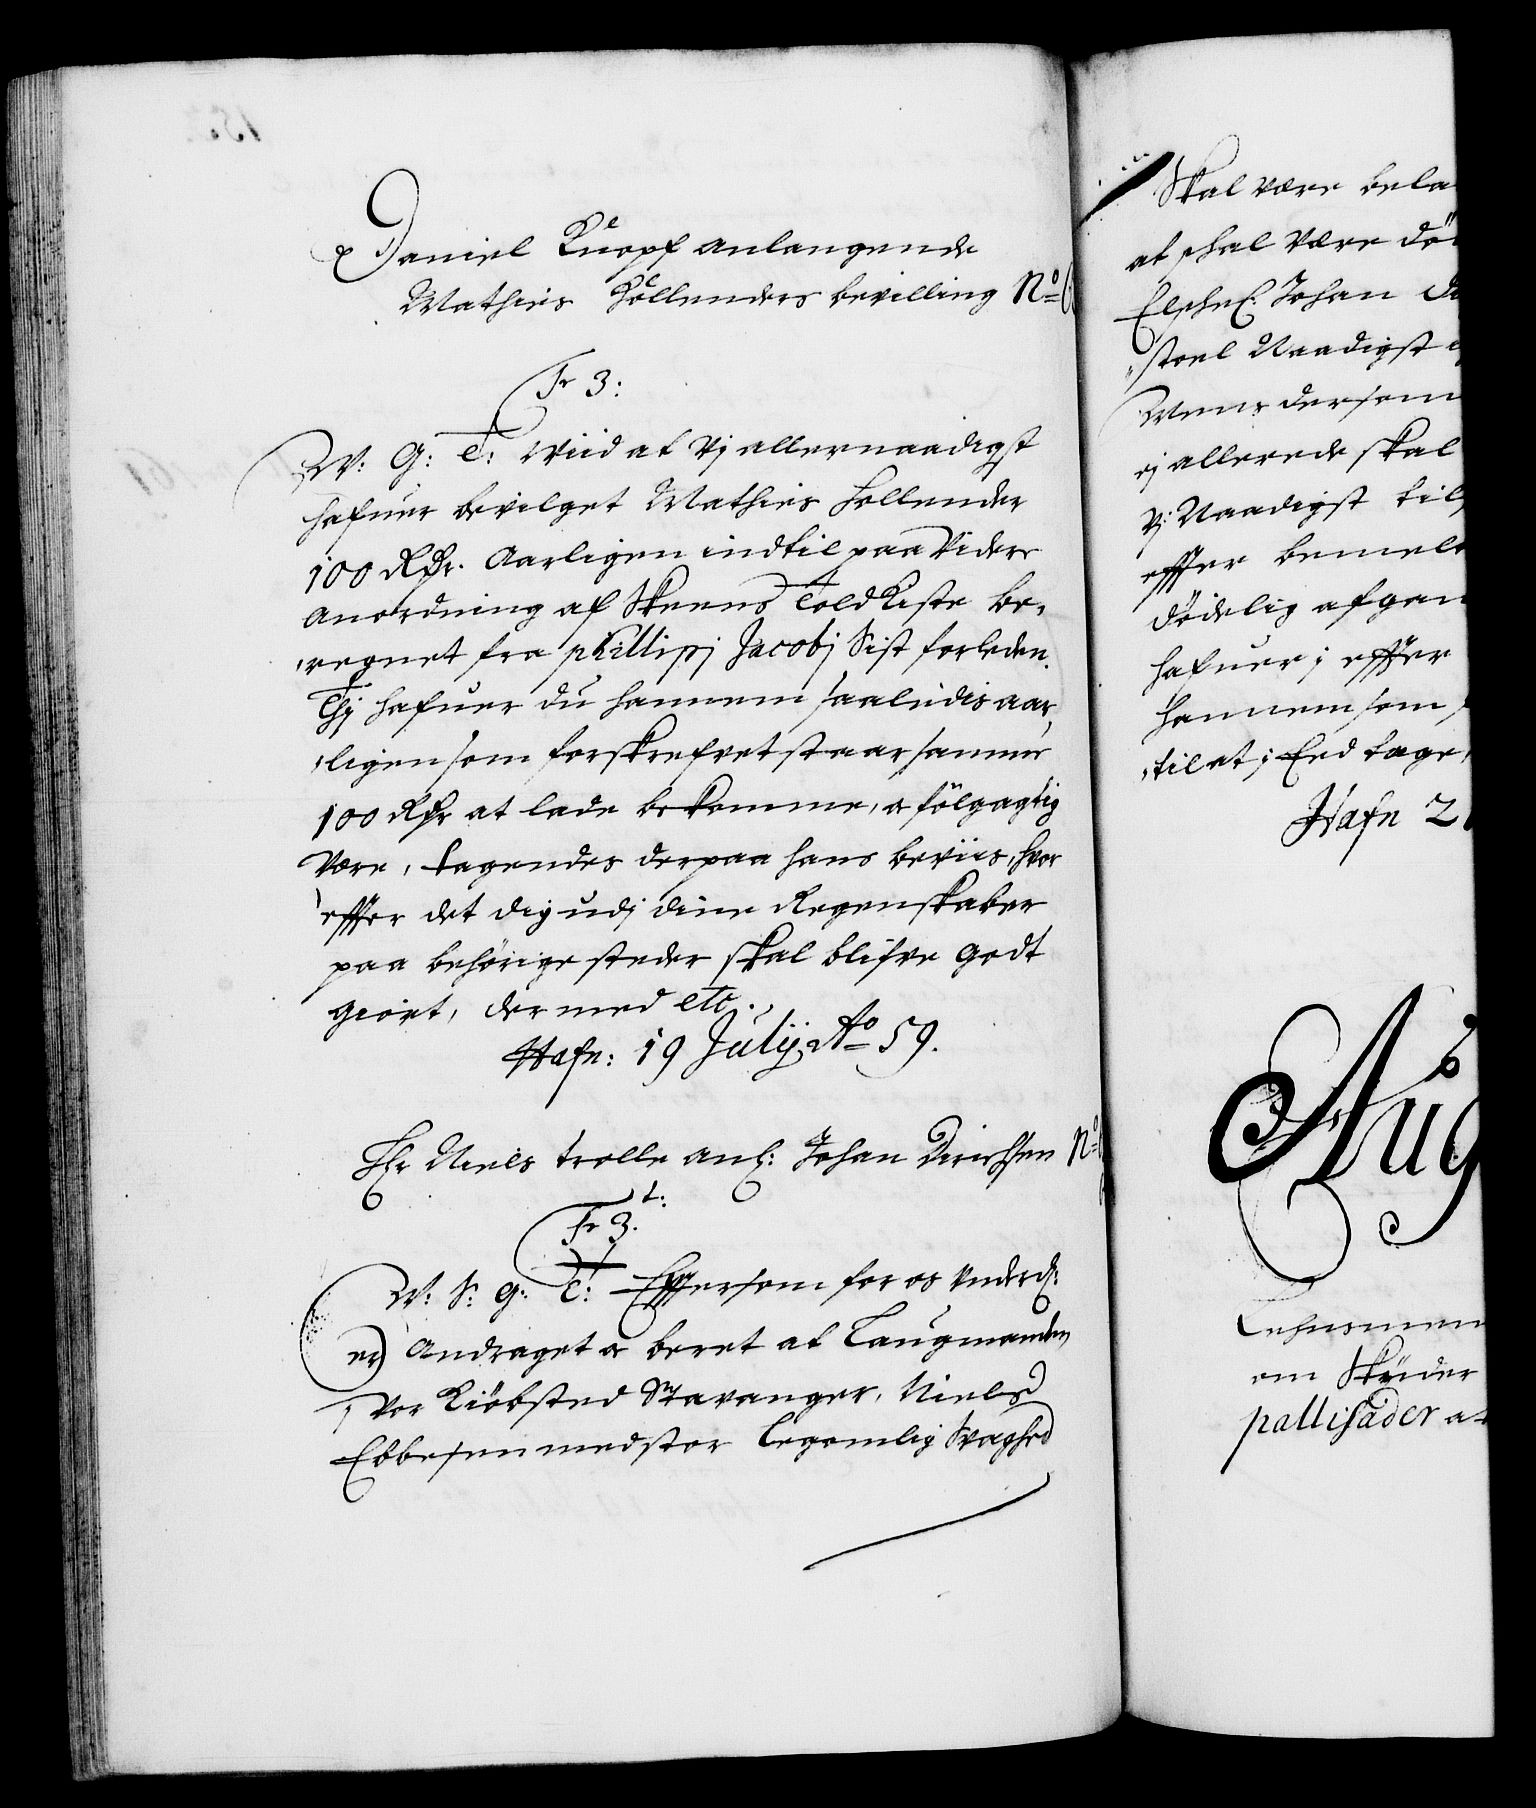 Daniel Knopf anlangende
Mathies Hollenders bevilling No
Fr 3:
W: G: T: Wiid at Vj allernaadigst
hafuer bevilget Mathies Hollender
100 Rdr. Aarligen indtil paa Videre
anordning af Skeens Told Kiste be-
regnet fra Phillipj Jacobj Sist forleden.
Thj hafuer du hannem saaledis aar-
ligen som forskrefvet staar samme
100 Rdr at lade bekomme, oc fölgagtig
Være, tagendes derpaa hans beviis, hvor
effter det dig udj dine Regenskaber
paa behörige steder skal blifve godt
giort, der med etc.
Hafn: 19 Julij Ao 59.
Hr Niels Trolle anl: Johan Dirichsen No
Fr 3. t:
W: S: G: T: Effersom for os Underd:
er Andraget oc beret at Laugmanden
i Vor Kiöbsted Stavanger, Niels
Ebbesen med stor Legemlig Svaghed
Skal være bela
at skal Være dö
Elskel: Johan Di
stoel Naadigst
Wenns dersom
ej allerede skal
Vj Naadigst til
effter bemelt
dödelig afgan
hafuer j effter
hannem som
til at j Eed tage
Hafn 2
Aug
Lehnsmen
om Skyder
pallisader at